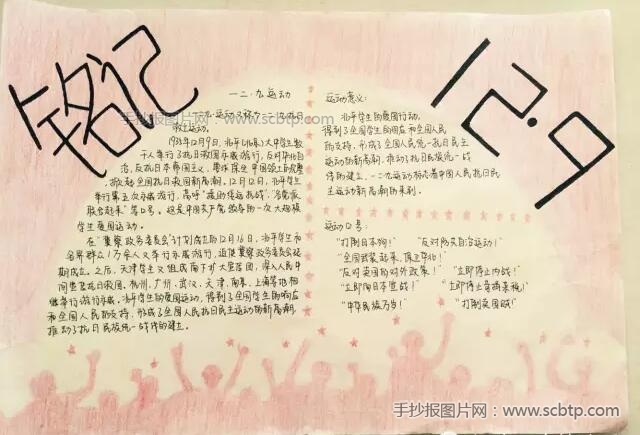 铭记
12.9
手抄报图片网:www.scbtp.com
一二·九运动
一二·九运动又称为一二九抗日
救亡运动。
1935年12月9日,北平(北京)大中学生数
千人举行了抗日救国示威游行,反对华北自
治,反抗日本帝国主义,要求保全中国领土的完整,
掀起全国抗日救国新高潮。12月12日,北平学生
举行第五次示威游行,高呼"援助绥远抗战","各党派
联合起来"等口号。这是中国共产党领导的一次大规模
学生爱国运动。
在"冀察政务委员会"计划成立的12月16日,北平学生和
各界群众1万余人又举行示威游行,迫使冀察政务委员会延
期成立。之后,天津学生又组成南下扩大宣传团,深入人民中
间宣传抗日救国。杭州、广州、武汉、天津、南京、上海等地相
继举行游行示威。北平学生的爱国运动,得到了全国学生的响应
和全国人民的支持,形成了全国人民抗日民主运动的新高潮,
推动了抗日民族统一战线的建立。
运动意义:
北平学生的爱国行动,
得到了全国学生的响应和全国人民
的支持,形成了全国人民抗日民主
运动的新高潮,推动了抗日民族统一战
线的建立。一二九运动标志着中国人民抗日民
主运动新高潮的来到。
运动口号:
"打倒日本狗!" "反对防共自治运动!"
"全国武装起来,保卫华北!"
"反对卖国的对外政策!" "立即停止内战!"
"立即向日本宣战!"
"中华民族万岁!" "打倒卖国贼!"
手抄报图片网:www.scbtp.com